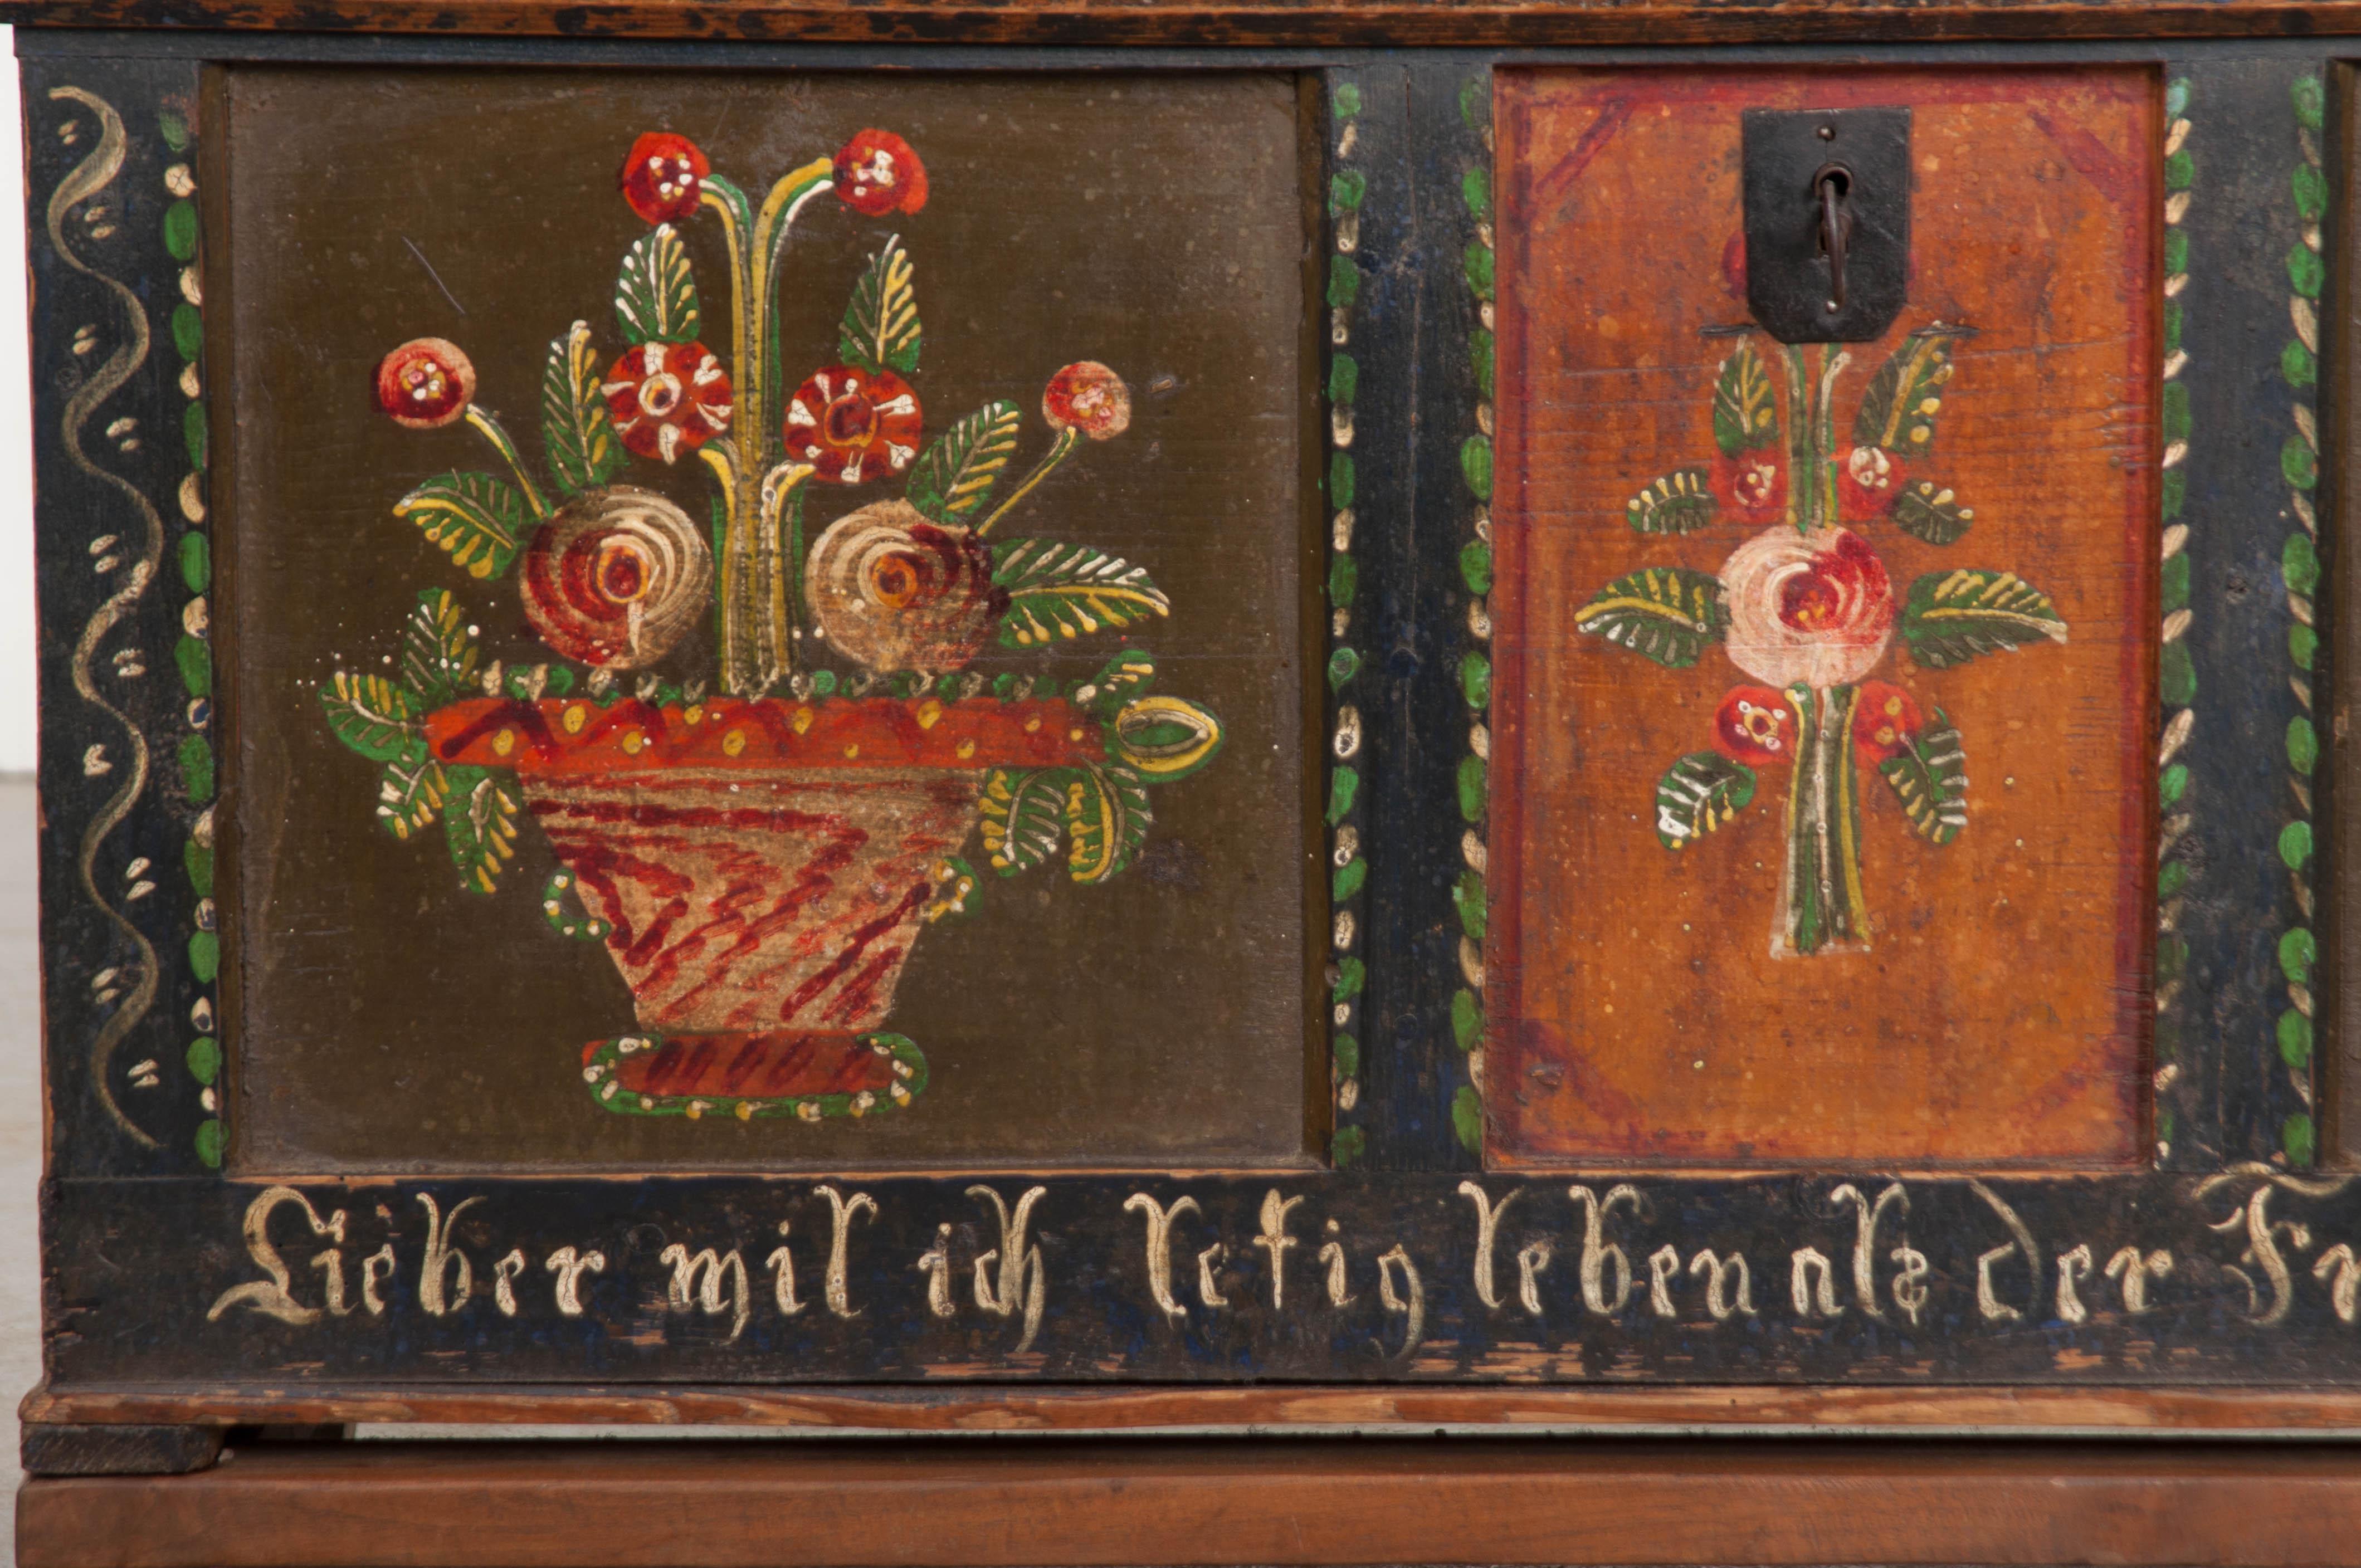 Lieber wil ich ledig leben als der Fr